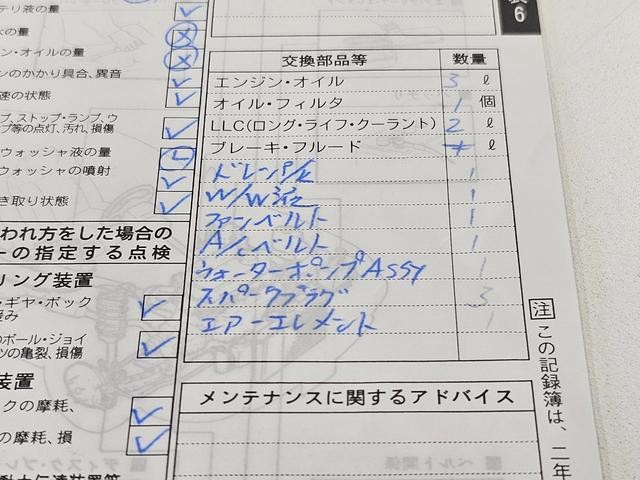 テリ液の量
水の量
ン・オイルの量
ンのかかり具合、異音
速の状態
プ、ストップ・ランプ、ウ
プ等の点灯、汚れ、損傷
ウォッシャ液の量 L
ウォッシャの噴射
き取り状態
われ方をした場合の
ーの指定する点検
リング装置
ギヤ・ボック
緩み
ボール・ジョイ
ツの亀裂、損傷
装置
クの摩耗、
の摩耗、損
6
交換部品等 数量
エンジン・オイル 3 ℓ
オイル・フィルタ 1 個
LLC(ロング・ライフ・クーラント) 2 ℓ
ブレーキ・フルード ℓ
ドレンP/K 1
W/W液 1
ファンベルト 1
A/Cベルト 1
ウォーターポンプASSY 1
スパークプラグ 3
エアーエレメント 1
メンテナンスに関するアドバイス
注 この記録簿は、二年